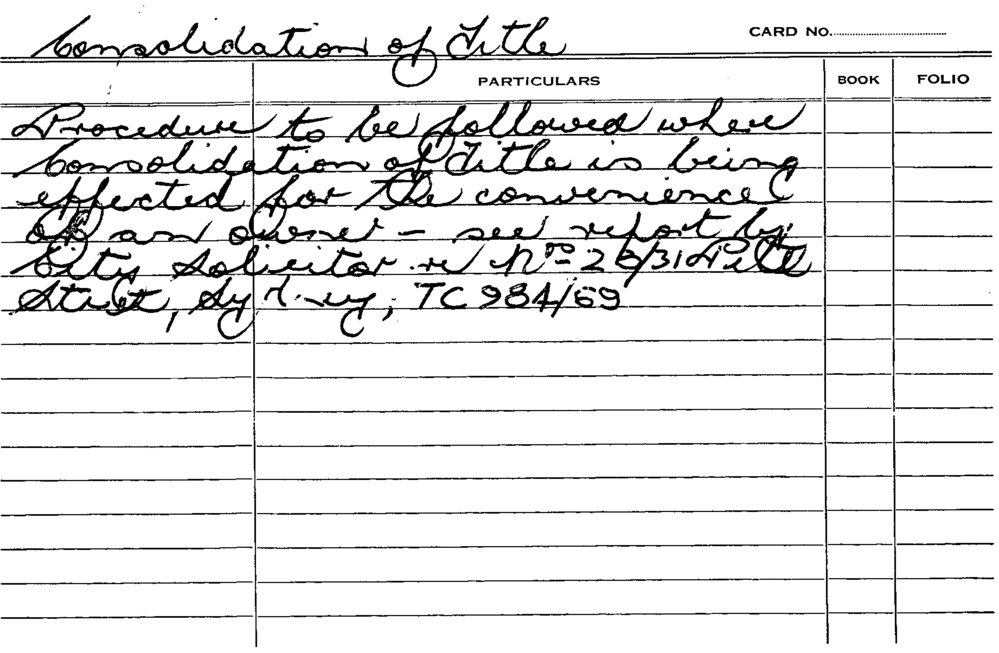 Consolidation of Title
CARD NO.
PARTICULARS BOOK FOLIO
Procedure to be followed where
Consolidation of Title is being
effected for the convenience
of an owner – see report by
City Solicitor re Nos 23/31 Pitt
Street, Sydney, TC 984/69